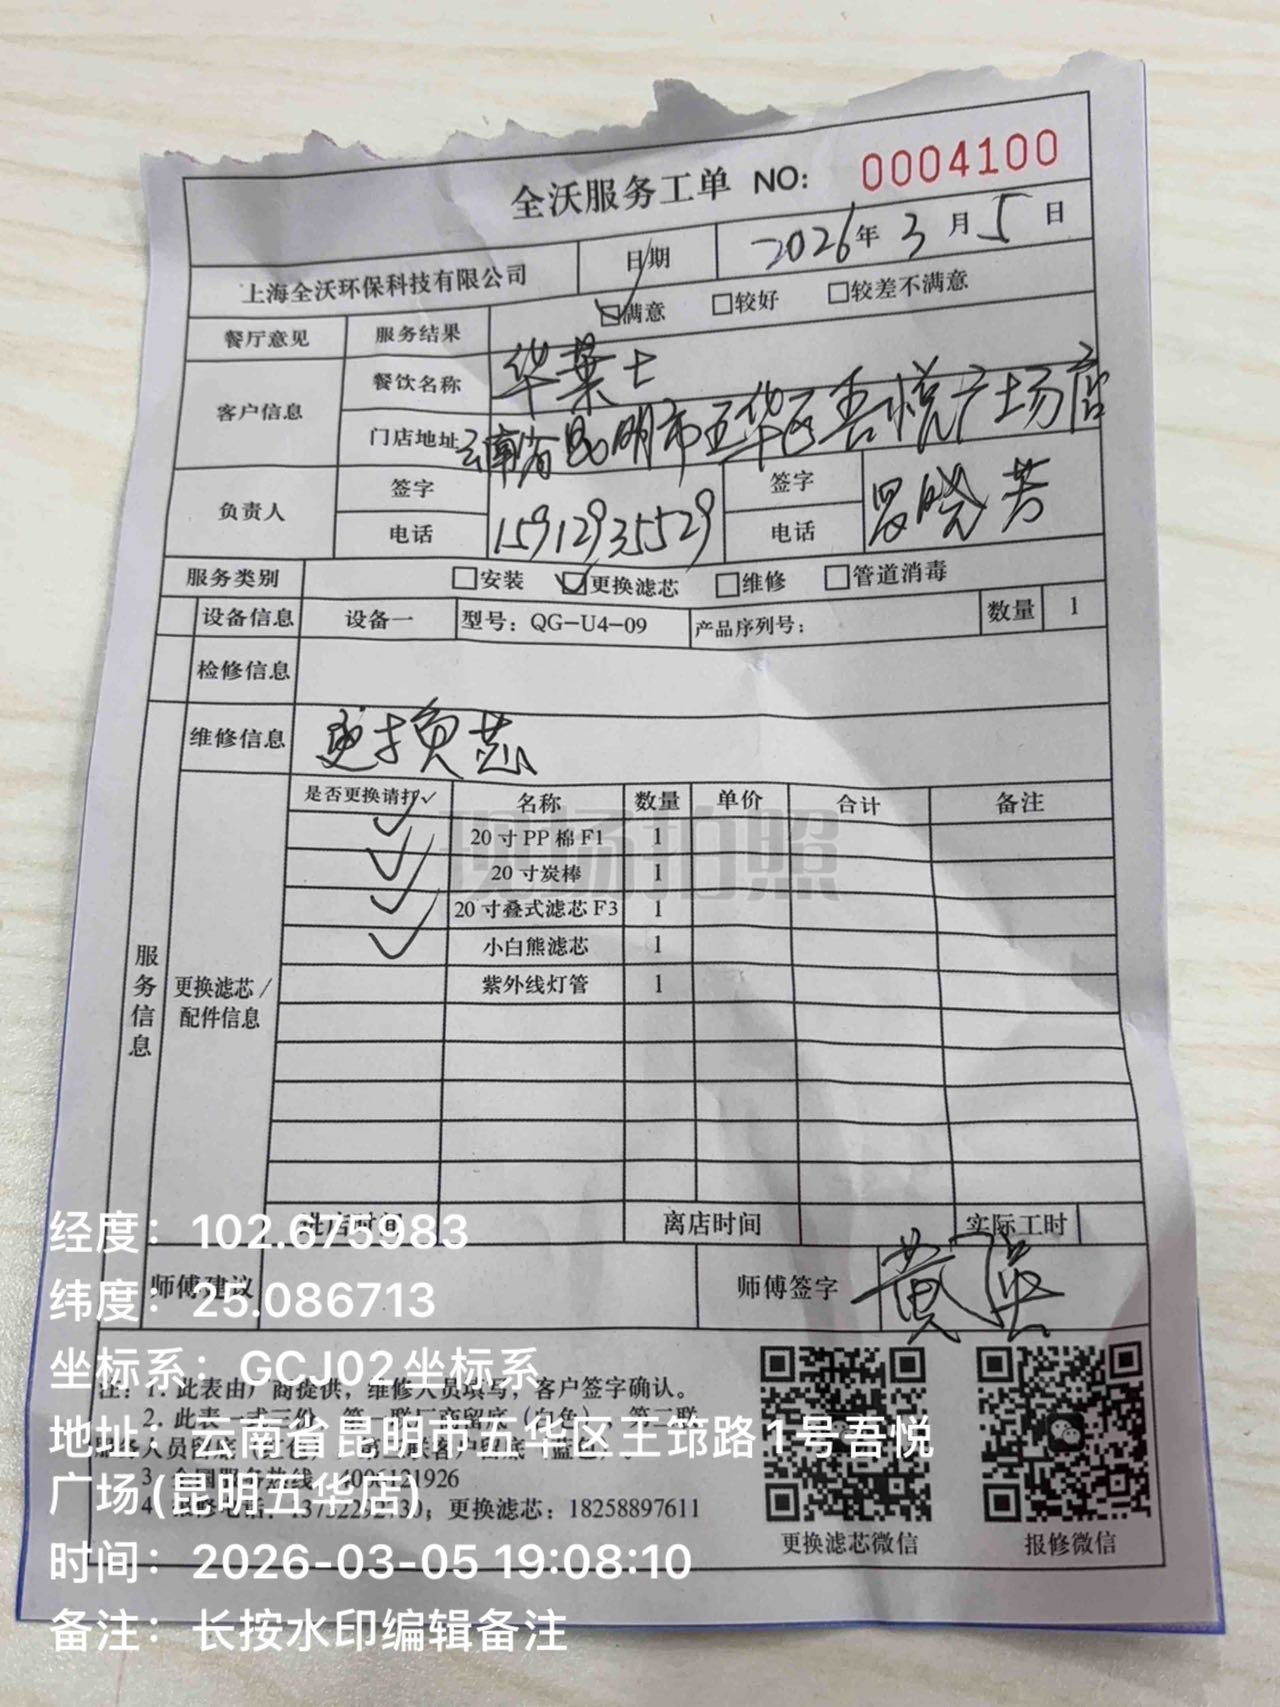 全沃服务工单 NO: 0004100
上海全沃环保科技有限公司 日期 2026年3月5日
餐厅意见 服务结果 ☑满意 □较好 □较差不满意
客户信息 餐饮名称 华莱士
门店地址 云南省昆明市五华区吾悦广场店
负责人 签字 签字
电话 15912935529 电话 晓芳
服务类别 □安装 ☑更换滤芯 □维修 □管道消毒
设备信息 设备一 型号：QG-U4-09 产品序列号： 数量 1
检修信息
维修信息 更换负芯
服务信息
更换滤芯/
配件信息
是否更换请打✓ 名称 数量 单价 合计 备注
✓ 20寸PP棉F1 1
✓ 20寸炭棒 1
✓ 20寸叠式滤芯F3 1
✓ 小白熊滤芯 1
紫外线灯管 1
现场拍照
进店时间 离店时间 实际工时
师傅建议 师傅签字 黄
注：1. 此表由厂商提供，维修人员填写，客户签字确认。
2. 此表一式三份，第一联厂商留底（白色），第二联
服务人员留底
3. 全国服务热线
4. 报修电话：；更换滤芯：18258897611
更换滤芯微信 报修微信
经度：102.675983
纬度：25.086713
坐标系：GCJ02坐标系
地址：云南省昆明市五华区王筇路1号吾悦
广场(昆明五华店)
时间：2026-03-05 19:08:10
备注：长按水印编辑备注